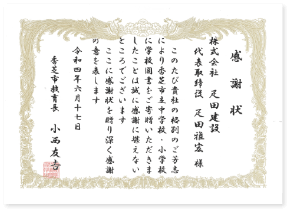 感謝状
株式会社 疋田建設
代表取締役 疋田雅宏 様
このたび貴社の格別のご芳志
により香芝市立中学校・小学校
に学校図書をご寄贈いただきま
したことは誠に感謝に堪えない
ところでございます
ここに感謝状を贈り深く感謝
の意を表します
令和四年六月十七日
香芝市教育長 小西友吉